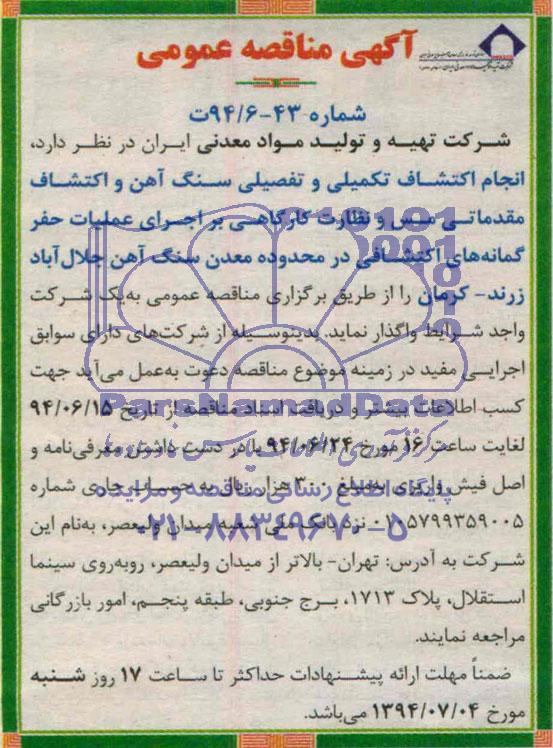 آگهی مناقصه عمومی
شماره ۴۳-۹۴/۶ت
شرکت تهیه و تولید مواد معدنی ایران در نظر دارد،
انجام اکتشاف تکمیلی و تفصیلی سنگ آهن و اکتشاف
مقدماتی مس و نظارت کارگاهی بر اجرای عملیات حفر
گمانه‌های اکتشافی در محدوده معدن سنگ آهن جلال‌آباد
زرند- کرمان را از طریق برگزاری مناقصه عمومی به‌یک شرکت
واجد شرایط واگذار نماید. بدینوسیله از شرکت‌های دارای سوابق
اجرایی مفید در زمینه موضوع مناقصه دعوت به‌عمل می‌آید جهت
کسب اطلاعات بیشتر و دریافت اسناد مناقصه از تاریخ ۹۴/۰۶/۱۵
لغایت ساعت ۱۶ مورخ ۹۴/۰۶/۲۴ با در دست داشتن معرفی‌نامه و
اصل فیش واریزی به‌مبلغ ۳۰۰ هزار ریال به حساب جاری شماره
۰۱۰۵۷۹۹۳۵۹۰۰۵ نزد بانک ملی شعبه میدان ولیعصر، به‌نام این
شرکت به آدرس: تهران- بالاتر از میدان ولیعصر، روبه‌روی سینما
استقلال، پلاک ۱۷۱۳، برج جنوبی، طبقه پنجم، امور بازرگانی
مراجعه نمایند.
ضمناً مهلت ارائه پیشنهادات حداکثر تا ساعت ۱۷ روز شنبه
مورخ ۱۳۹۴/۰۷/۰۴ می‌باشد.
ParsNamadData
پایگاه اطلاع رسانی مناقصه و مزایده
۰۲۱-۸۸۳۴۹۶۷۰-۵